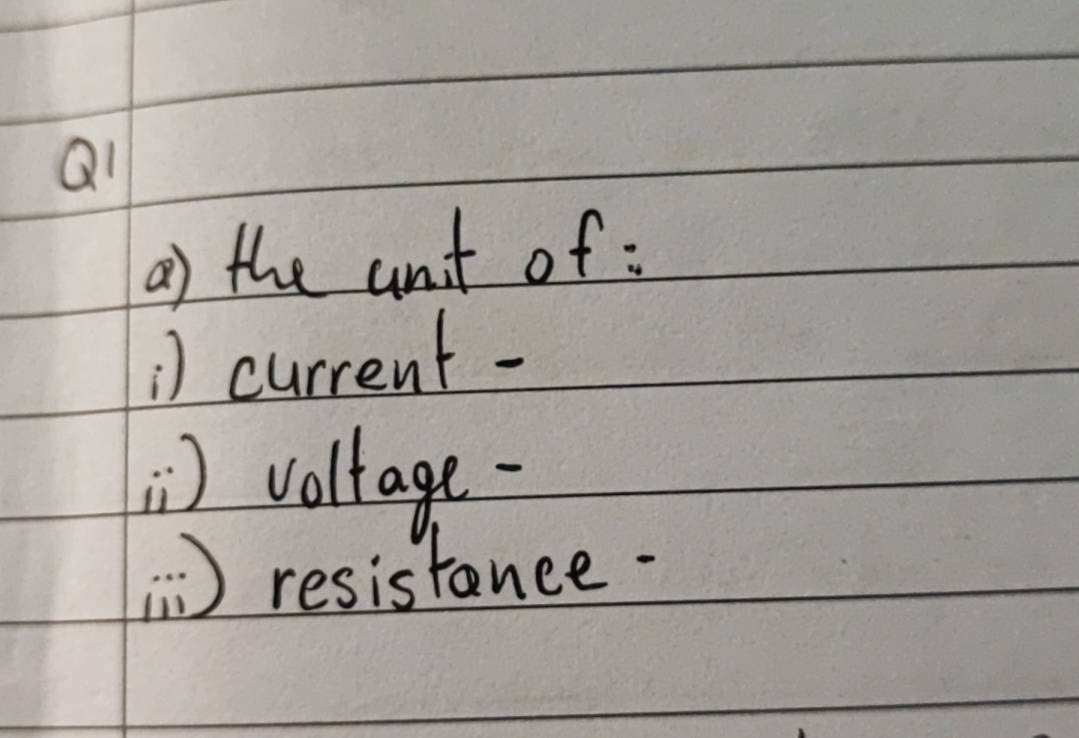 Q1
a) the unit of:
i) current -
ii) voltage -
iii) resistance -